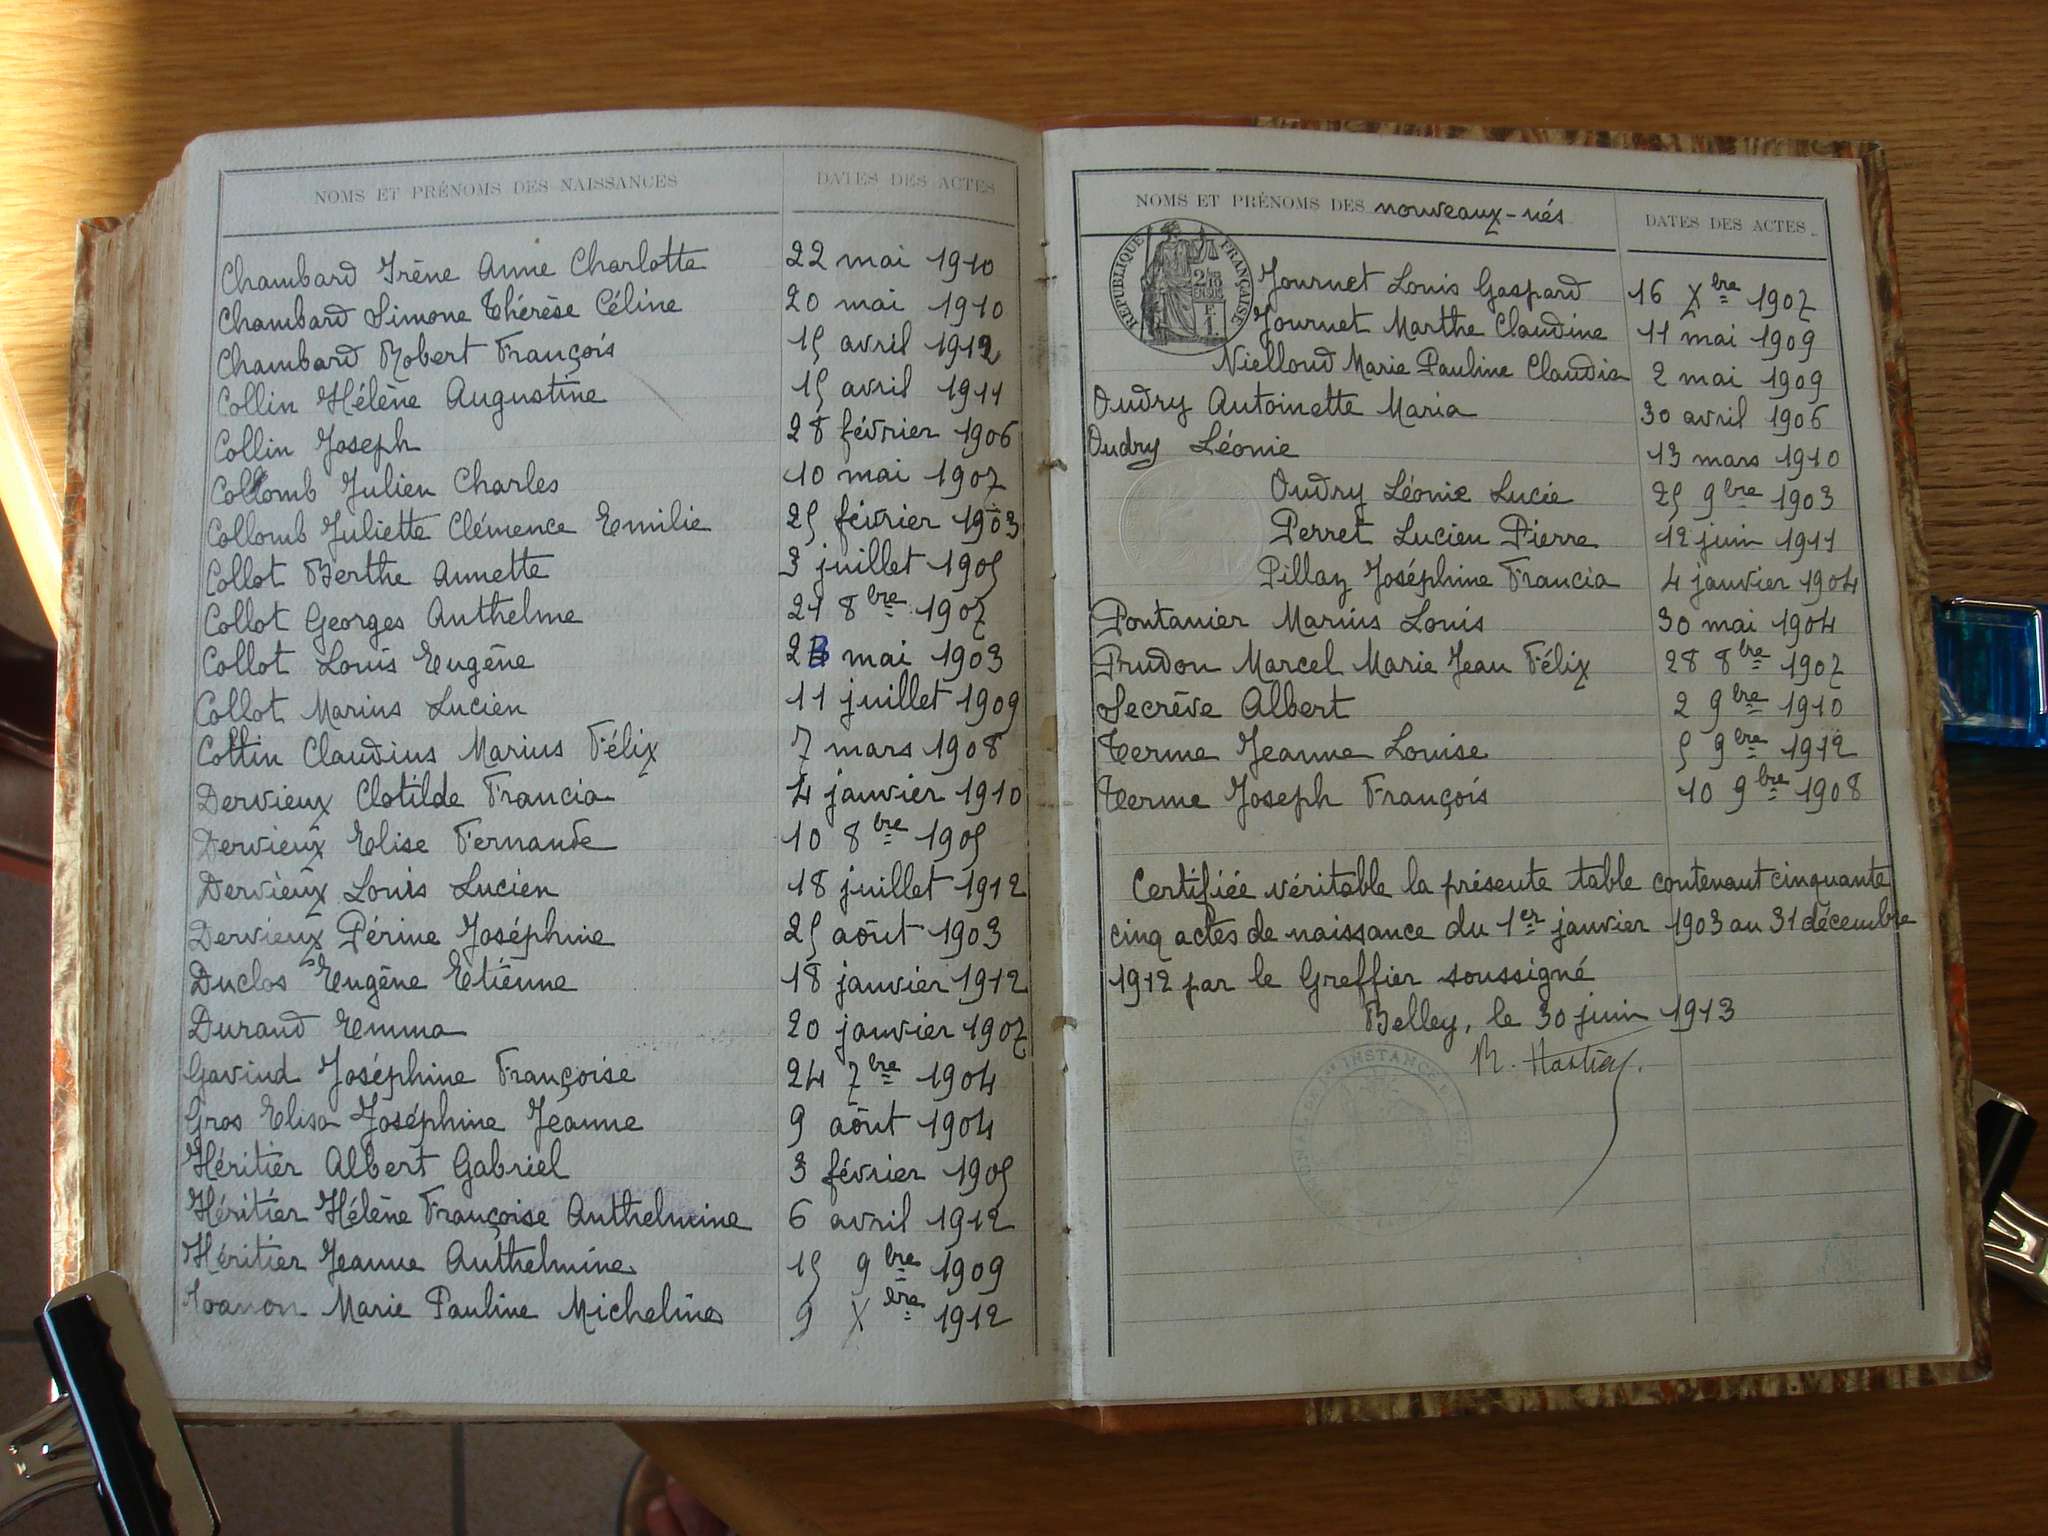 NOMS ET PRÉNOMS DES NAISSANCES DATES DES ACTES
Chambard Irène Anne Charlotte 22 mai 1910
Chambard Simone Thérèse Céline 20 mai 1910
Chambard Robert François 15 avril 1912
Collin Hélène Augustine 15 avril 1911
Collin Joseph 28 février 1906
Collomb Julien Charles 10 mai 1907
Collomb Juliette Clémence Emilie 25 février 1903
Collot Berthe Annette 3 juillet 1905
Collot Georges Anthelme 21 8bre 1907
Collot Louis Eugène 23 mai 1903
Collot Marius Lucien 11 juillet 1909
Cottin Claudius Marius Félix 7 mars 1908
Dervieux Clotilde Francia 4 janvier 1910
Dervieux Elise Fernande 10 8bre 1905
Dervieux Louis Lucien 18 juillet 1912
Dervieux Périne Joséphine 25 août 1903
Duclos Eugène Etiènne 18 janvier 1912
Durand Emma 20 janvier 1907
Gavind Joséphine Françoise 24 7bre 1904
Gros Elisa Joséphine Jeanne 9 août 1904
Héritier Albert Gabriel 3 février 1905
Héritier Hélène Françoise Anthelmine 6 avril 1912
Héritier Jeanne Anthelmine 15 9bre 1909
Marie Pauline Micheline 9 Xbre 1912
NOMS ET PRÉNOMS DES nouveaux-nés DATES DES ACTES
RÉPUBLIQUE FRANÇAISE
Journet Louis Gaspard 16 Xbre 1907
Journet Marthe Claudine 11 mai 1909
Nielloud Marie Pauline Claudia 2 mai 1909
Oudry Antoinette Maria 30 avril 1906
Oudry Léonie 13 mars 1910
Oudry Léonie Lucie 25 9bre 1903
Perret Lucien Pierre 12 juin 1911
Pillaz Joséphine Francia 4 janvier 1904
Pontanier Marius Louis 30 mai 1904
Prudon Marcel Marie Jean Félix 28 8bre 1907
Secrève Albert 2 9bre 1910
Terme Jeanne Louise 5 9bre 1912
Terme Joseph François 10 9bre 1908
Certifiée véritable la présente table contenant cinquante
cinq actes de naissance du 1er janvier 1903 au 31 décembre
1912 par le Greffier soussigné
Belley, le 30 juin 1913
INSTANCE